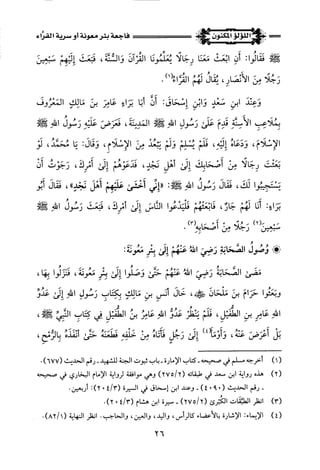 اللؤلؤ المكنون
فاجعة بئر معونة أو سرية القراء
ﷺ فَقَالُوا: أَنِ ابْعَثْ مَعَنَا رِجَالًا يُعَلِّمُونَا الْقُرْآنَ وَالسُّنَّةَ، فَبَعَثَ إِلَيْهِمْ سَبْعِينَ
رَجُلًا مِنَ الْأَنْصَارِ، يُقَالُ لَهُمُ الْقُرَّاءُ(١).
وَعِنْدَ ابنِ سَعْدٍ وَابْنِ إِسْحَاقَ: أَنَّ أَبَا بَرَاءٍ عَامِرَ بنَ مَالِكٍ الْمَعْرُوفَ
بِمُلَاعِبِ الْأَسِنَّةِ قَدِمَ عَلَى رَسُولِ اللهِ ﷺ الْمَدِينَةَ، فَعَرَضَ عَلَيْهِ رَسُولُ اللهِ ﷺ
الْإِسْلَامَ، وَدَعَاهُ إِلَيْهِ، فَلَمْ يُسْلِمْ وَلَمْ يَبْعُدْ مِنَ الْإِسْلَامِ، وَقَالَ: يَا مُحَمَّدُ، لَوْ
بَعَثْتَ رِجَالًا مِنْ أَصْحَابِكَ إِلَى أَهْلِ نَجْدٍ، فَدَعَوْهُمْ إِلَى أَمْرِكَ، رَجَوْتُ أَنْ
يَسْتَجِيبُوا لَكَ، فَقَالَ رَسُولُ اللهِ ﷺ: «إِنِّي أَخْشَى عَلَيْهِمْ أَهْلَ نَجْدٍ»، فَقَالَ أَبُو
بَرَاءٍ: أَنَا لَهُمْ جَارٌ، فَابْعَثْهُمْ فَلْيَدْعُوا النَّاسَ إِلَى أَمْرِكَ، فَبَعَثَ رَسُولُ اللهِ ﷺ
سَبْعِينَ(٢) رَجُلًا مِنْ أَصْحَابِهِ(٣).
وُصُولُ الصَّحَابَةِ رَضِيَ اللهُ عَنْهُمْ إِلَى بِئْرِ مَعُونَةَ:
مَضَى الصَّحَابَةُ رَضِيَ اللهُ عَنْهُمْ حَتَّى وَصَلُوا إِلَى بِئْرِ مَعُونَةَ، فَنَزَلُوا بِهَا،
وَبَعَثُوا حَرَامَ بنَ مَلْحَانَ، خَالَ أَنَسِ بنِ مَالِكٍ بِكِتَابِ رَسُولِ اللهِ إِلَى عَدُوِّ
اللهِ عَامِرِ بنِ الطُّفَيْلِ، فَلَمْ يَنْظُرْ عَدُوُّ اللهِ عَامِرُ بنُ الطُّفَيْلِ فِي كِتَابِ النَّبِيِّ ﷺ،
بَلْ أَعْرَضَ عَنْهُ، وَأَوْمَأَ(٤) إِلَى رَجُلٍ فَأَتَاهُ مِنْ خَلْفِهِ فَطَعَنَهُ حَتَّى أَنْفَذَهُ بِالرُّمْحِ،
(١) أخرجه مسلم في صحيحه ـ كتاب الإمارة ـ باب ثبوت الجنة للشهيد ـ رقم الحديث (٦٧٧).
(٢) هذه رواية ابن سعد في طبقاته (٢٧٥/٢) وهي موافقة لرواية الإمام البخاري في صحيحه
ـ رقم الحديث (٤٠٩٠) ـ وعند ابن إسحاق في السيرة (٢٠٤/٣): أربعين.
(٣) انظر الطَّبَقَات الكُبْرى (٢٧٥/٢) ـ سيرة ابن هشام (٢٠٤/٣).
(٤) الإيماء: الإشارة بالأعضاء كالرأس، واليد، والعين، والحاجب. انظر النهاية (٨٢/١).
٢٦